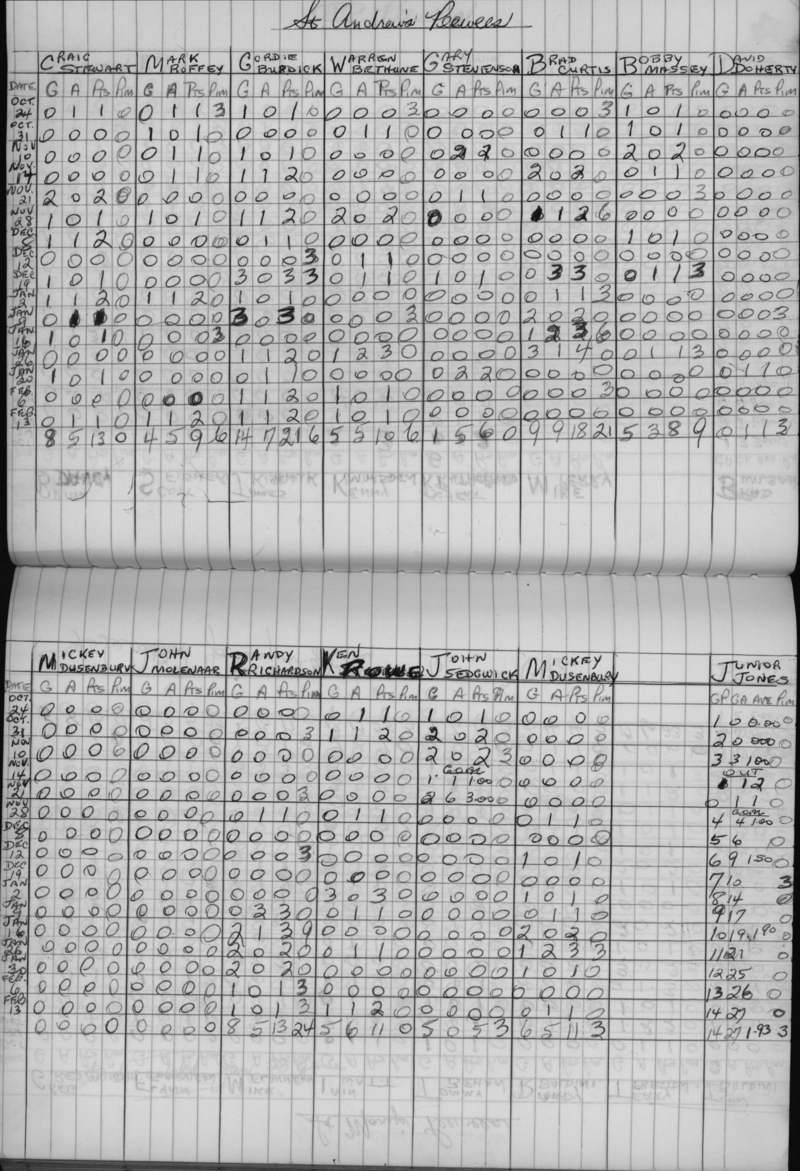 St Andrew's Peewees
CRAIG STEWART MARK ROFFEY GORDIE BURDICK WARREN BETHUNE GARY STEVENSON BRAD CURTIS BOBBY MASSEY DAVID DOHERTY
DATE G A Pts Pim G A Pts Pim G A Pts Pim G A Pts Pim G A Pts Pim G A Pts Pim G A Pts Pim G A Pts Pim
OCT. 24 0 1 1 0 0 1 1 3 1 0 1 0 0 0 0 3 0 0 0 0 0 0 0 3 1 0 1 0 0 0 0 0
OCT. 31 0 0 0 0 1 0 1 0 0 0 0 0 0 1 1 0 0 0 0 0 0 1 1 0 1 0 1 0 0 0 0 0
NOV 10 0 0 0 0 0 1 1 0 1 0 1 0 0 0 0 0 0 2 2 0 0 0 0 0 2 0 2 0 0 0 0 0
NOV. 14 0 0 0 0 0 1 1 0 1 1 2 0 0 0 0 0 0 0 0 0 2 0 2 0 0 1 1 0 0 0 0 0
NOV. 21 2 0 2 0 0 0 0 0 0 0 0 0 0 0 0 0 0 1 1 0 0 0 0 0 0 0 0 3 0 0 0 0
NOV 28 1 0 1 0 1 0 1 0 1 1 2 0 2 0 2 0 0 0 0 0 1 1 2 6 0 0 0 0 0 0 0 0
DEC 5 1 1 2 0 0 0 0 0 0 1 1 0 0 0 0 0 0 0 0 0 0 0 0 0 1 0 1 0 0 0 0 0
DEC 12 0 0 0 0 0 0 0 0 0 0 0 3 0 1 1 0 0 0 0 0 0 0 0 0 0 0 0 0 0 0 0 0
DEC 19 1 0 1 0 0 0 0 0 3 0 3 3 0 1 1 0 1 0 1 0 0 3 3 0 0 1 1 3 0 0 0 0
JAN 2 1 1 2 0 1 1 2 0 1 0 1 0 0 0 0 0 0 0 0 0 0 1 1 3 0 0 0 0 0 0 0 0
JAN 9 0 1 1 0 0 0 0 0 3 0 3 0 0 0 0 3 0 0 0 0 2 0 2 0 0 0 0 0 0 0 0 3
JAN 16 1 0 1 0 0 0 0 3 0 0 0 0 0 0 0 0 0 0 0 0 1 2 3 6 0 0 0 0 0 0 0 0
JAN 26 0 0 0 0 0 0 0 0 1 1 2 0 1 2 3 0 0 0 0 0 3 1 4 0 0 1 1 3 0 0 0 0
JAN 30 1 0 1 0 0 0 0 0 0 1 1 0 0 0 0 0 0 2 2 0 0 0 0 0 0 0 0 0 0 1 1 0
FEB. 6 0 0 0 0 0 0 0 0 1 1 2 0 1 0 1 0 0 0 0 0 0 0 0 3 0 0 0 0 0 0 0 0
FEB. 13 0 1 1 0 1 1 2 0 1 1 2 0 1 0 1 0 0 0 0 0 0 0 0 0 0 0 0 0 0 0 0 0
8 5 13 0 4 5 9 6 14 7 21 6 5 5 10 6 1 5 6 0 9 9 18 21 5 3 8 9 0 1 1 3
MICKEY DUSENBURY JOHN MOLENAAR RANDY RICHARDSON KEN ROWE JOHN SEDGWICK MICKEY DUSENBURY JUNIOR JONES
DATE G A Pts Pim G A Pts Pim G A Pts Pim G A Pts Pim G A Pts Pim G A Pts Pim GP GA AVE Pim
OCT. 24 0 0 0 0 0 0 0 0 0 0 0 0 0 1 1 0 1 0 1 0 0 0 0 0 1 0 0.00 0
OCT. 31 0 0 0 0 0 0 0 0 0 0 0 3 1 1 2 0 2 0 2 0 0 0 0 0 2 0 0.00 0
NOV 10 0 0 0 0 0 0 0 0 0 0 0 0 0 0 0 0 2 0 2 3 0 0 0 0 3 3 1.00 0
NOV. 14 0 0 0 0 0 0 0 0 0 0 0 0 0 0 0 0 GOAL 1 1 1.00 0 0 0 0 OUT 1 1 2 0
NOV 21 0 0 0 0 0 0 0 0 0 0 0 3 0 0 0 0 2 6 3.00 0 0 0 0 0 0 1 1 0
NOV 28 0 0 0 0 0 0 0 0 0 1 1 0 0 1 1 0 0 0 0 0 0 1 1 0 GOAL 4 4 1.00 0
DEC 5 0 0 0 0 0 0 0 0 0 0 0 0 0 0 0 0 0 0 0 0 0 0 0 0 5 6 0
DEC 12 0 0 0 0 0 0 0 0 0 0 0 3 0 0 0 0 0 0 0 0 1 0 1 0 6 9 1.50 0
DEC 19 0 0 0 0 0 0 0 0 0 0 0 0 0 0 0 0 0 0 0 0 0 0 0 0 7 10 3
JAN 2 0 0 0 0 0 0 0 0 0 0 0 0 3 0 3 0 0 0 0 0 1 0 1 0 8 14 0
JAN 9 0 0 0 0 0 0 0 0 0 3 3 0 0 1 1 0 0 0 0 0 0 1 1 0 9 17 0
JAN 16 0 0 0 0 0 0 0 0 2 1 3 9 0 0 0 0 0 0 0 0 2 0 2 0 10 19 1.90 0
JAN 26 0 0 0 0 0 0 0 0 2 0 2 0 0 1 1 0 0 0 0 0 1 2 3 3 11 21 0
JAN 30 0 0 0 0 0 0 0 0 2 0 2 0 0 0 0 0 0 0 0 0 1 0 1 0 12 25 0
FEB. 6 0 0 0 0 0 0 0 0 1 0 1 3 0 0 0 0 0 0 0 0 0 0 0 0 13 26 0
FEB 13 0 0 0 0 0 0 0 0 1 0 1 3 1 1 2 0 0 0 0 0 0 1 1 0 14 27 0
0 0 0 0 0 0 0 0 8 5 13 24 5 6 11 0 5 0 5 3 6 5 11 3 14 27 1.93 3